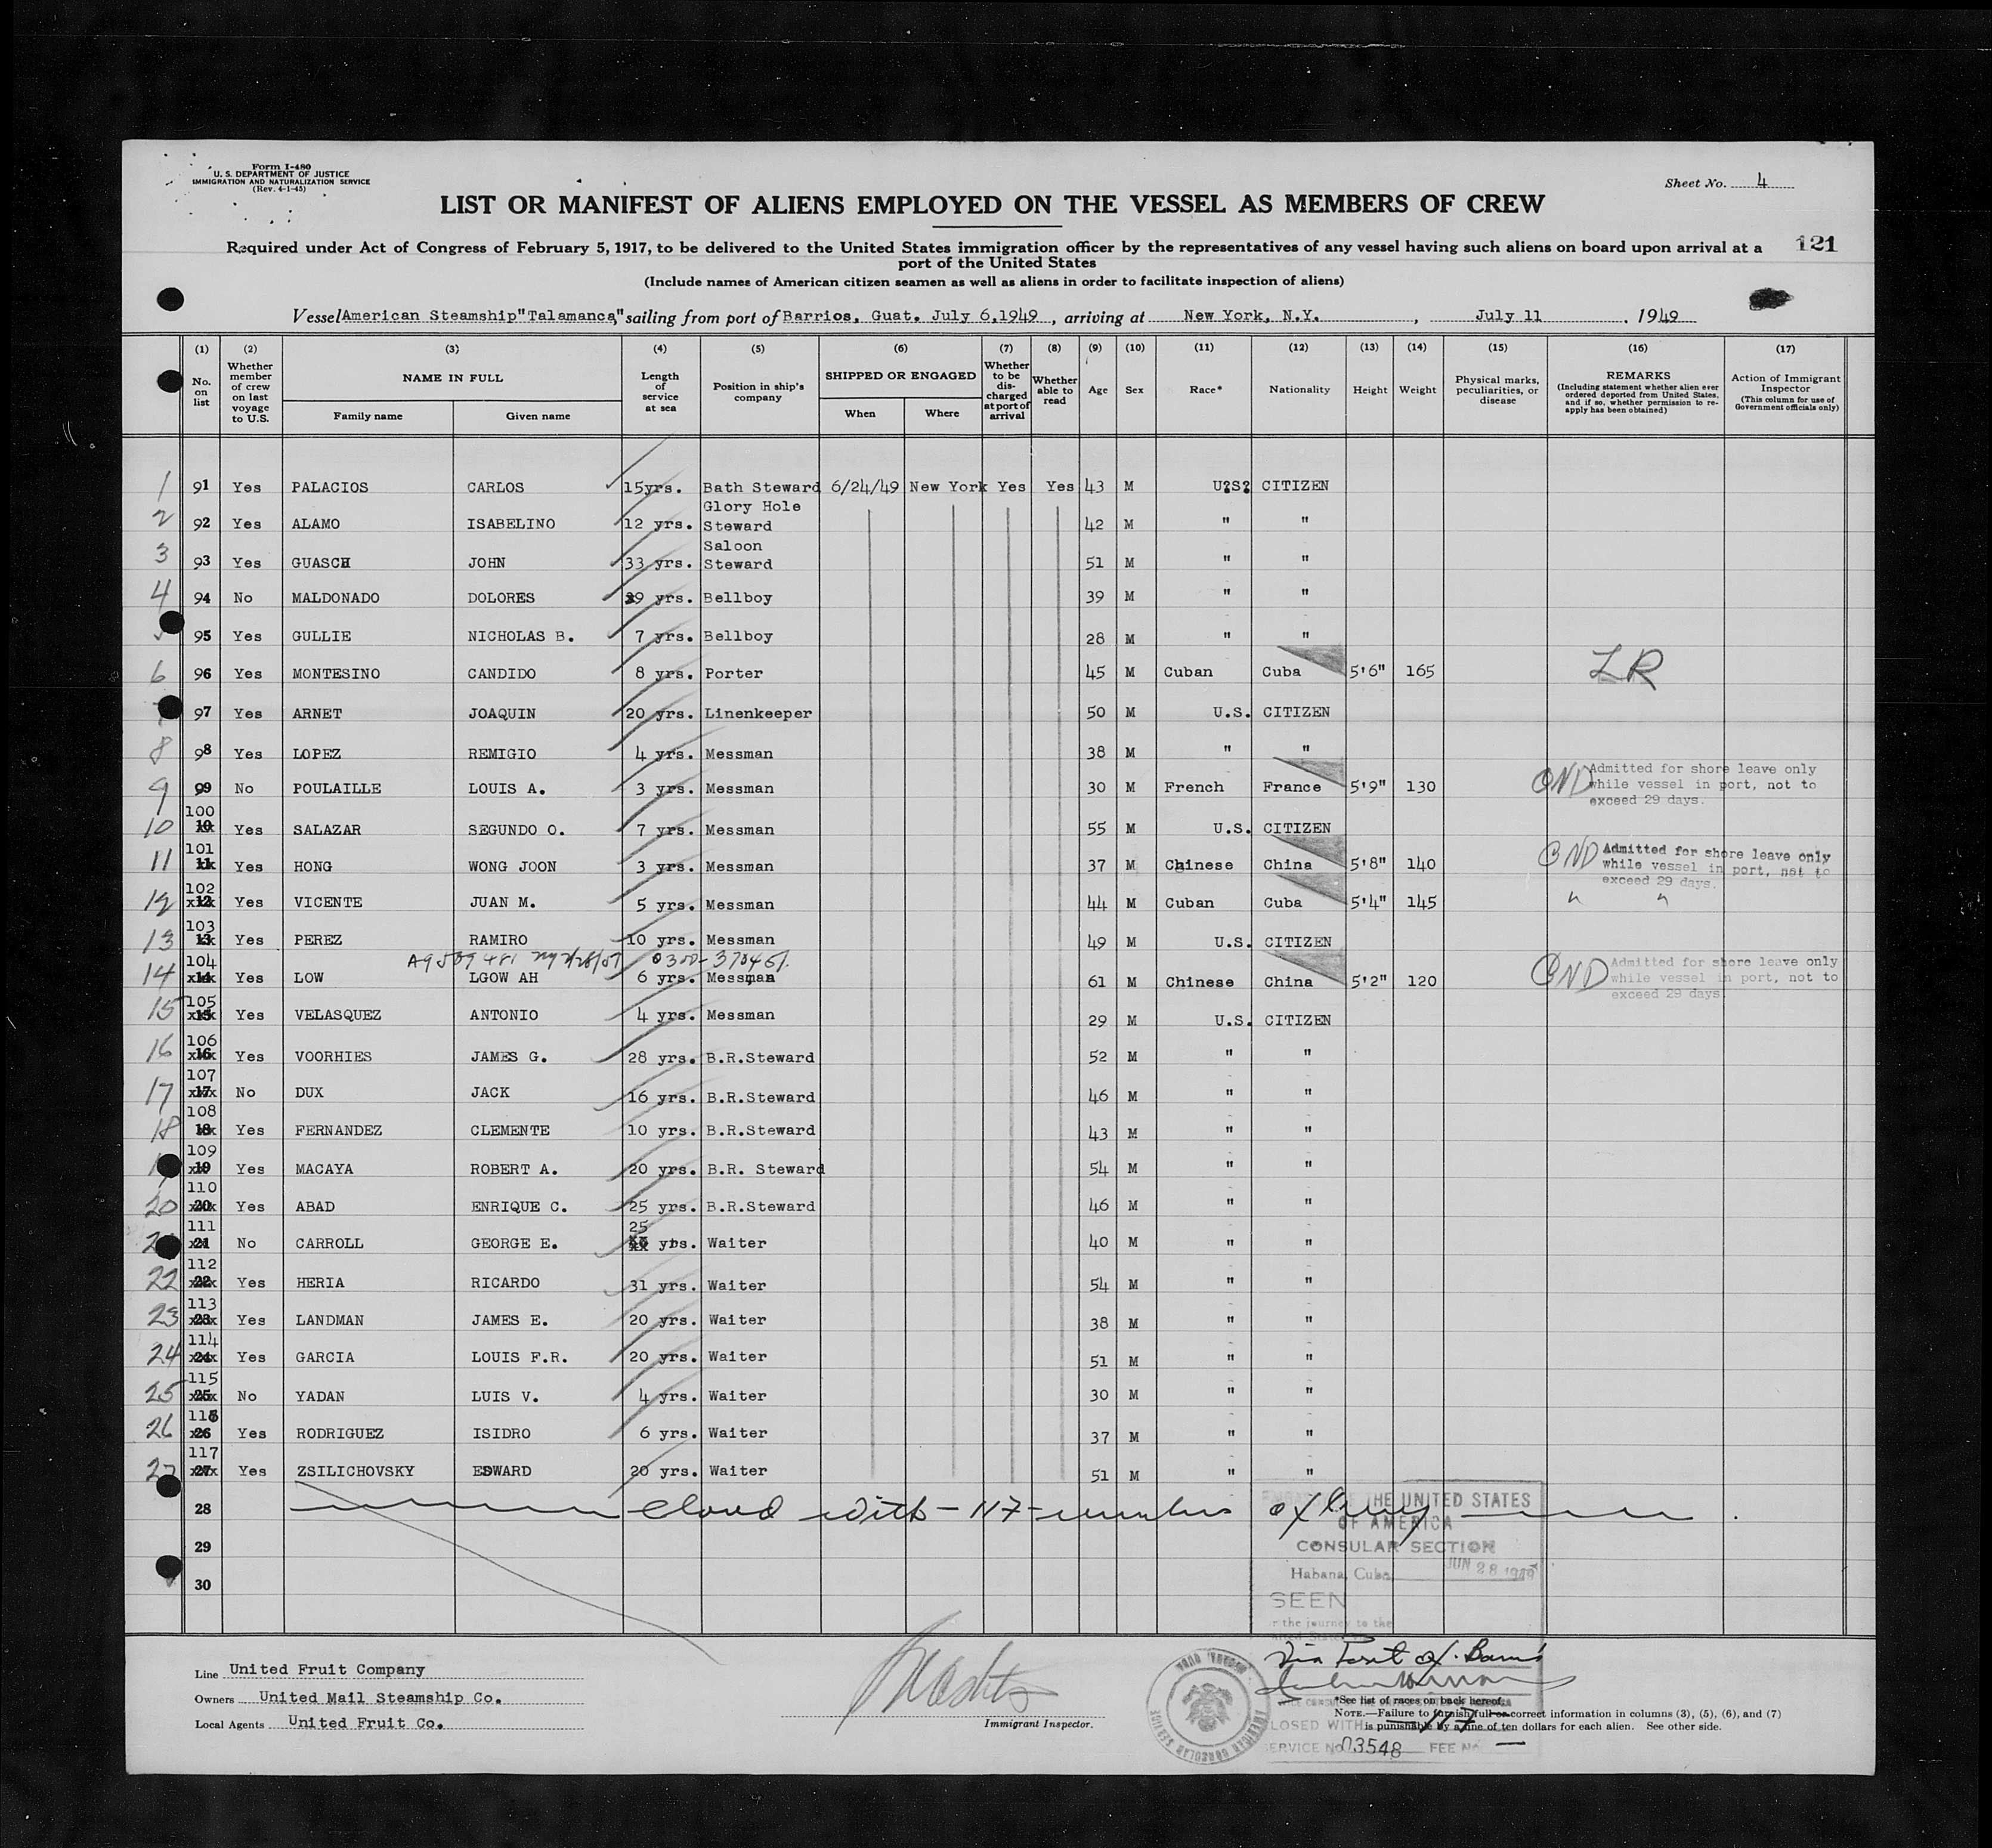 Form I-480
U. S. DEPARTMENT OF JUSTICE
IMMIGRATION AND NATURALIZATION SERVICE
(Rev. 4-1-45)
Sheet No. 4
LIST OR MANIFEST OF ALIENS EMPLOYED ON THE VESSEL AS MEMBERS OF CREW
121
Required under Act of Congress of February 5, 1917, to be delivered to the United States immigration officer by the representatives of any vessel having such aliens on board upon arrival at a
port of the United States
(Include names of American citizen seamen as well as aliens in order to facilitate inspection of aliens)
Vessel American Steamship "Talamanca," sailing from port of Barrios, Guat. July 6,1949, arriving at New York, N.Y., July 11, 1949
(1) (2) (3) (4) (5) (6) (7) (8) (9) (10) (11) (12) (13) (14) (15) (16) (17)
No. on list
Whether member of crew on last voyage to U.S.
NAME IN FULL
Family name
Given name
Length of service at sea
Position in ship's company
SHIPPED OR ENGAGED
When
Where
Whether to be discharged at port of arrival
Whether able to read
Age
Sex
Race*
Nationality
Height
Weight
Physical marks, peculiarities, or disease
REMARKS
(Including statement whether alien ever ordered deported from United States, and if so, whether permission to re-apply has been obtained)
Action of Immigrant Inspector
(This column for use of Government officials only)
1 91 Yes PALACIOS CARLOS 15yrs. Bath Steward 6/24/49 New York Yes Yes 43 M U?S? CITIZEN
2 92 Yes ALAMO ISABELINO 12 yrs. Glory Hole Steward 42 M " "
3 93 Yes GUASCH JOHN 33 yrs. Saloon Steward 51 M " "
4 94 No MALDONADO DOLORES 29 yrs. Bellboy 39 M " "
95 Yes GULLIE NICHOLAS B. 7 yrs. Bellboy 28 M " "
6 96 Yes MONTESINO CANDIDO 8 yrs. Porter 45 M Cuban Cuba 5'6" 165 LR
97 Yes ARNET JOAQUIN 20 yrs. Linenkeeper 50 M U.S. CITIZEN
8 98 Yes LOPEZ REMIGIO 4 yrs. Messman 38 M " "
9 99 No POULAILLE LOUIS A. 3 yrs. Messman 30 M French France 5'9" 130 Admitted for shore leave only while vessel in port, not to exceed 29 days.
10 100 Yes SALAZAR SEGUNDO O. 7 yrs. Messman 55 M U.S. CITIZEN
11 101 Yes HONG WONG JOON 3 yrs. Messman 37 M Chinese China 5'8" 140 Admitted for shore leave only while vessel in port, not to exceed 29 days.
12 102 Yes VICENTE JUAN M. 5 yrs. Messman 44 M Cuban Cuba 5'4" 145 " "
13 103 Yes PEREZ RAMIRO 10 yrs. Messman 49 M U.S. CITIZEN
14 104 Yes LOW LGOW AH 6 yrs. Messman 61 M Chinese China 5'2" 120 Admitted for shore leave only while vessel in port, not to exceed 29 days.
15 105 Yes VELASQUEZ ANTONIO 4 yrs. Messman 29 M U.S. CITIZEN
16 106 Yes VOORHIES JAMES G. 28 yrs. B.R.Steward 52 M " "
17 107 No DUX JACK 16 yrs. B.R.Steward 46 M " "
18 108 Yes FERNANDEZ CLEMENTE 10 yrs. B.R.Steward 43 M " "
109 Yes MACAYA ROBERT A. 20 yrs. B.R. Steward 54 M " "
20 110 Yes ABAD ENRIQUE C. 25 yrs. B.R.Steward 46 M " "
111 No CARROLL GEORGE E. 25 yrs. Waiter 40 M " "
22 112 Yes HERIA RICARDO 31 yrs. Waiter 54 M " "
23 113 Yes LANDMAN JAMES E. 20 yrs. Waiter 38 M " "
24 114 Yes GARCIA LOUIS F.R. 20 yrs. Waiter 51 M " "
25 115 No YADAN LUIS V. 4 yrs. Waiter 30 M " "
26 116 Yes RODRIGUEZ ISIDRO 6 yrs. Waiter 37 M " "
27 117 Yes ZSILICHOVSKY EDWARD 20 yrs. Waiter 51 M " "
28 Closed with - 117 - members of crew
29
30
THE UNITED STATES
OF AMERICA
CONSULAR SECTION
Habana, Cuba JUN 28 1949
SEEN
r the journey to the
Line United Fruit Company
Owners United Mail Steamship Co.
Local Agents United Fruit Co.
Immigrant Inspector.
Via Port of
*See list of races on back hereof.
NOTE.—Failure to furnish full or correct information in columns (3), (5), (6), and (7)
is punishable by a fine of ten dollars for each alien. See other side.
CLOSED WITH 117
SERVICE No 03548 FEE No —